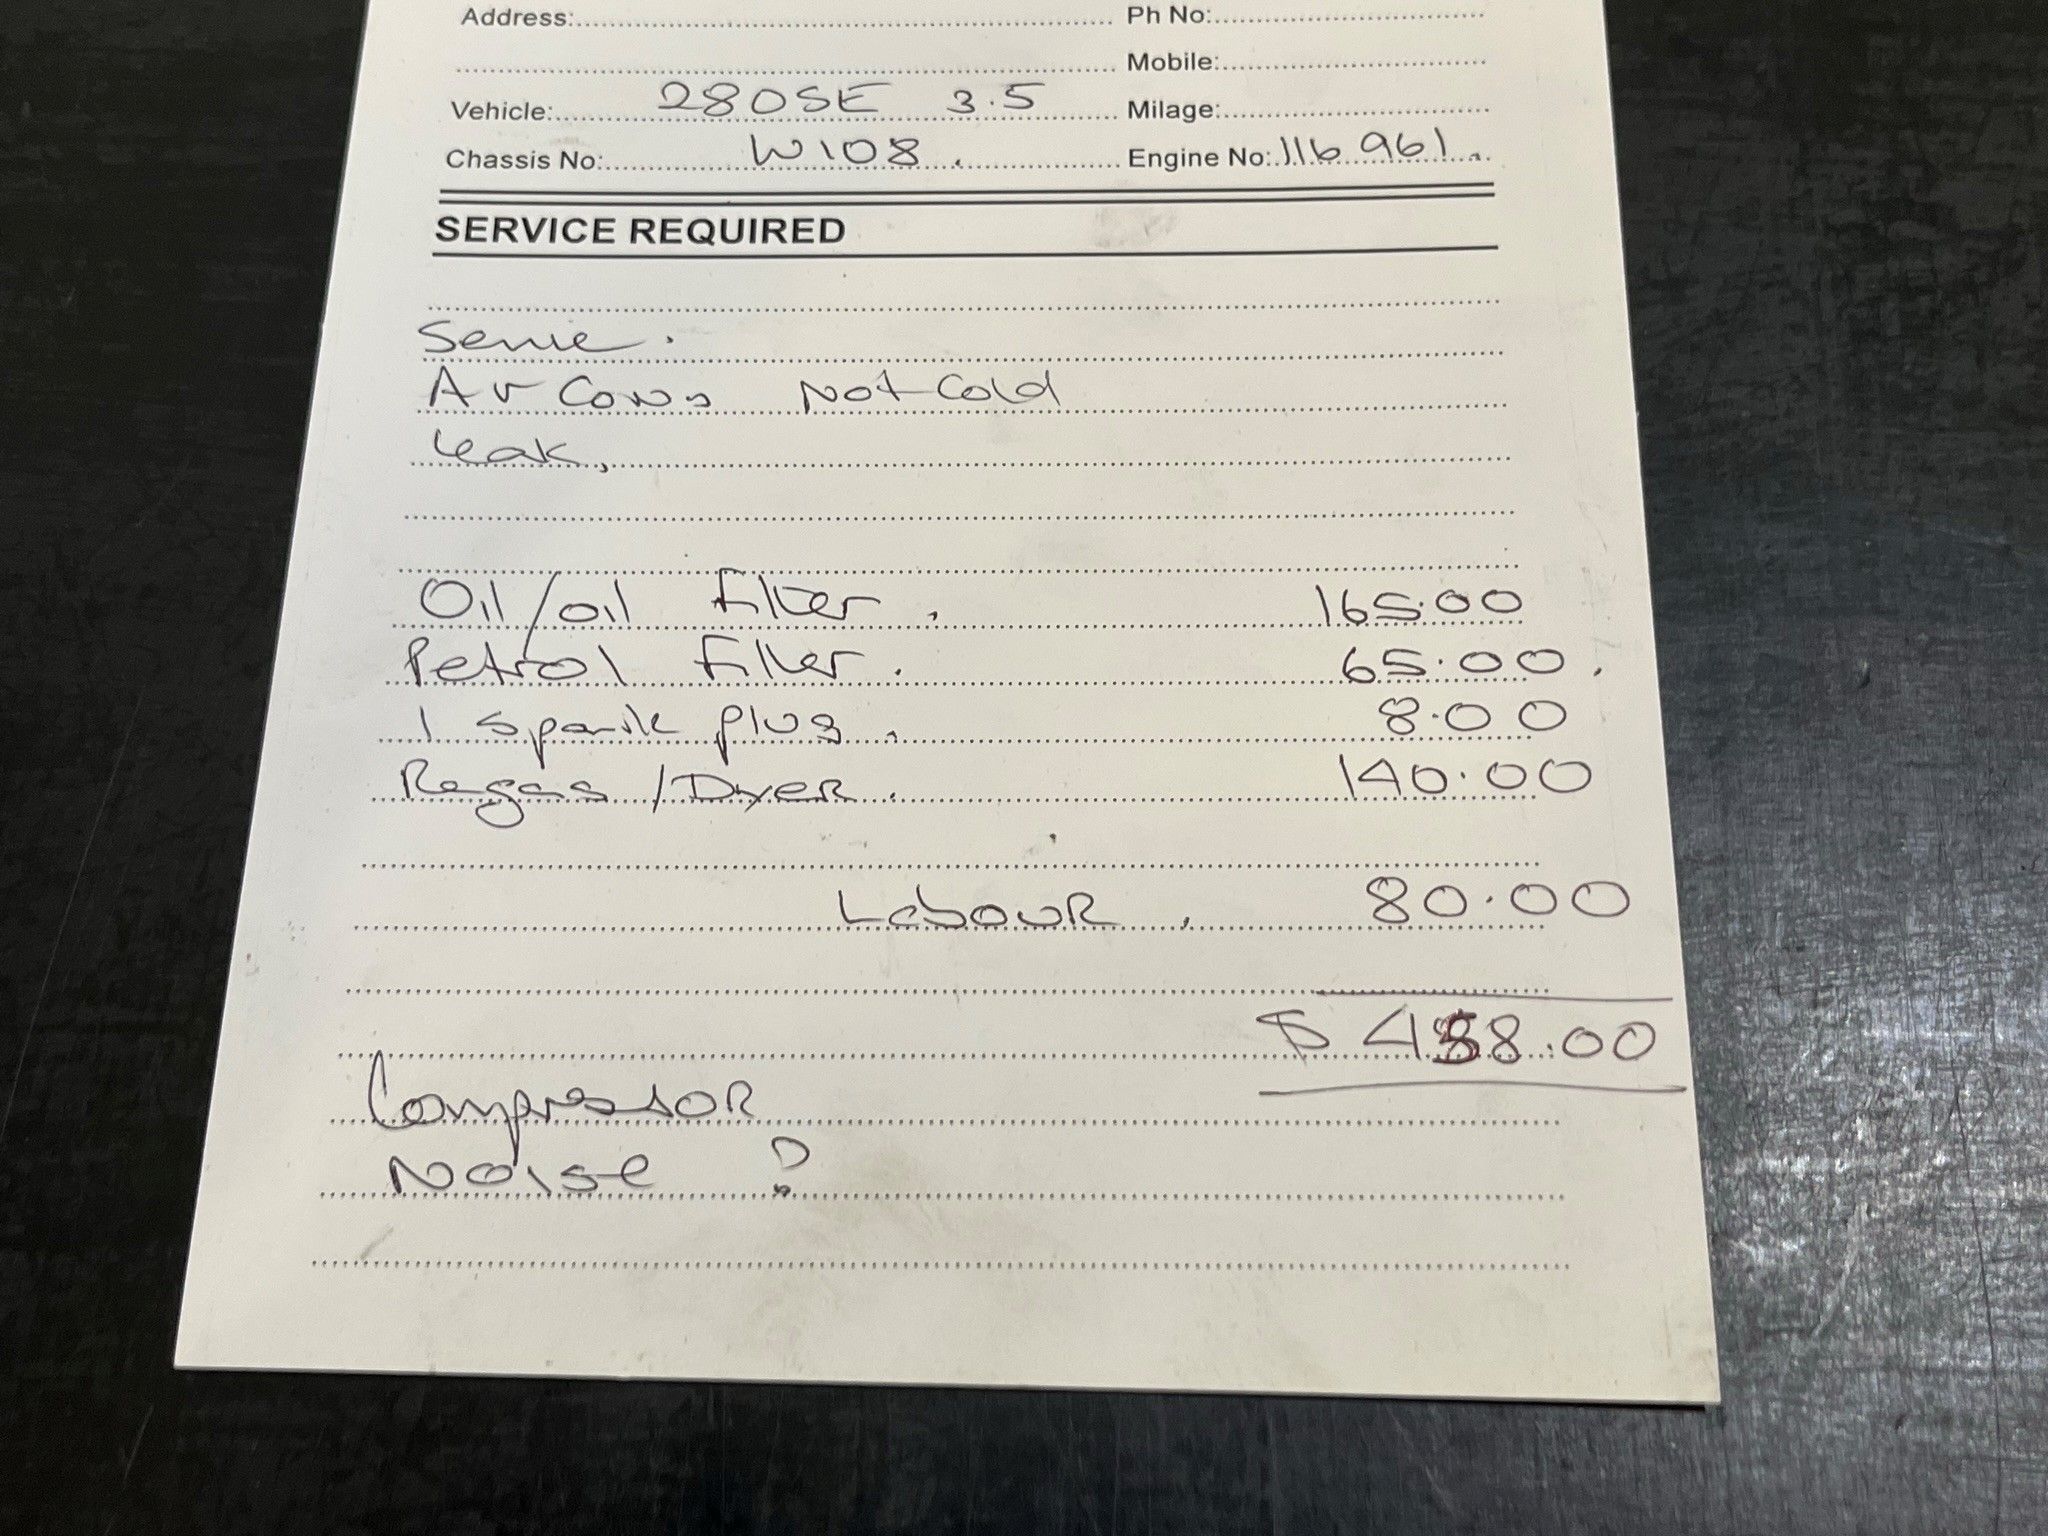 Address: Ph No:
Mobile:
Vehicle: 280SE 3.5 Milage:
Chassis No: W108. Engine No: 116 961.
SERVICE REQUIRED
Service.
Air Con Not Cold
Leak,
Oil/oil Filter. 165.00
Petrol Filter. 65.00.
1 spark plug. 8.00
Regas /Dryer. 140.00
Labour. 80.00
$ 458.00
Compressor
Noise?